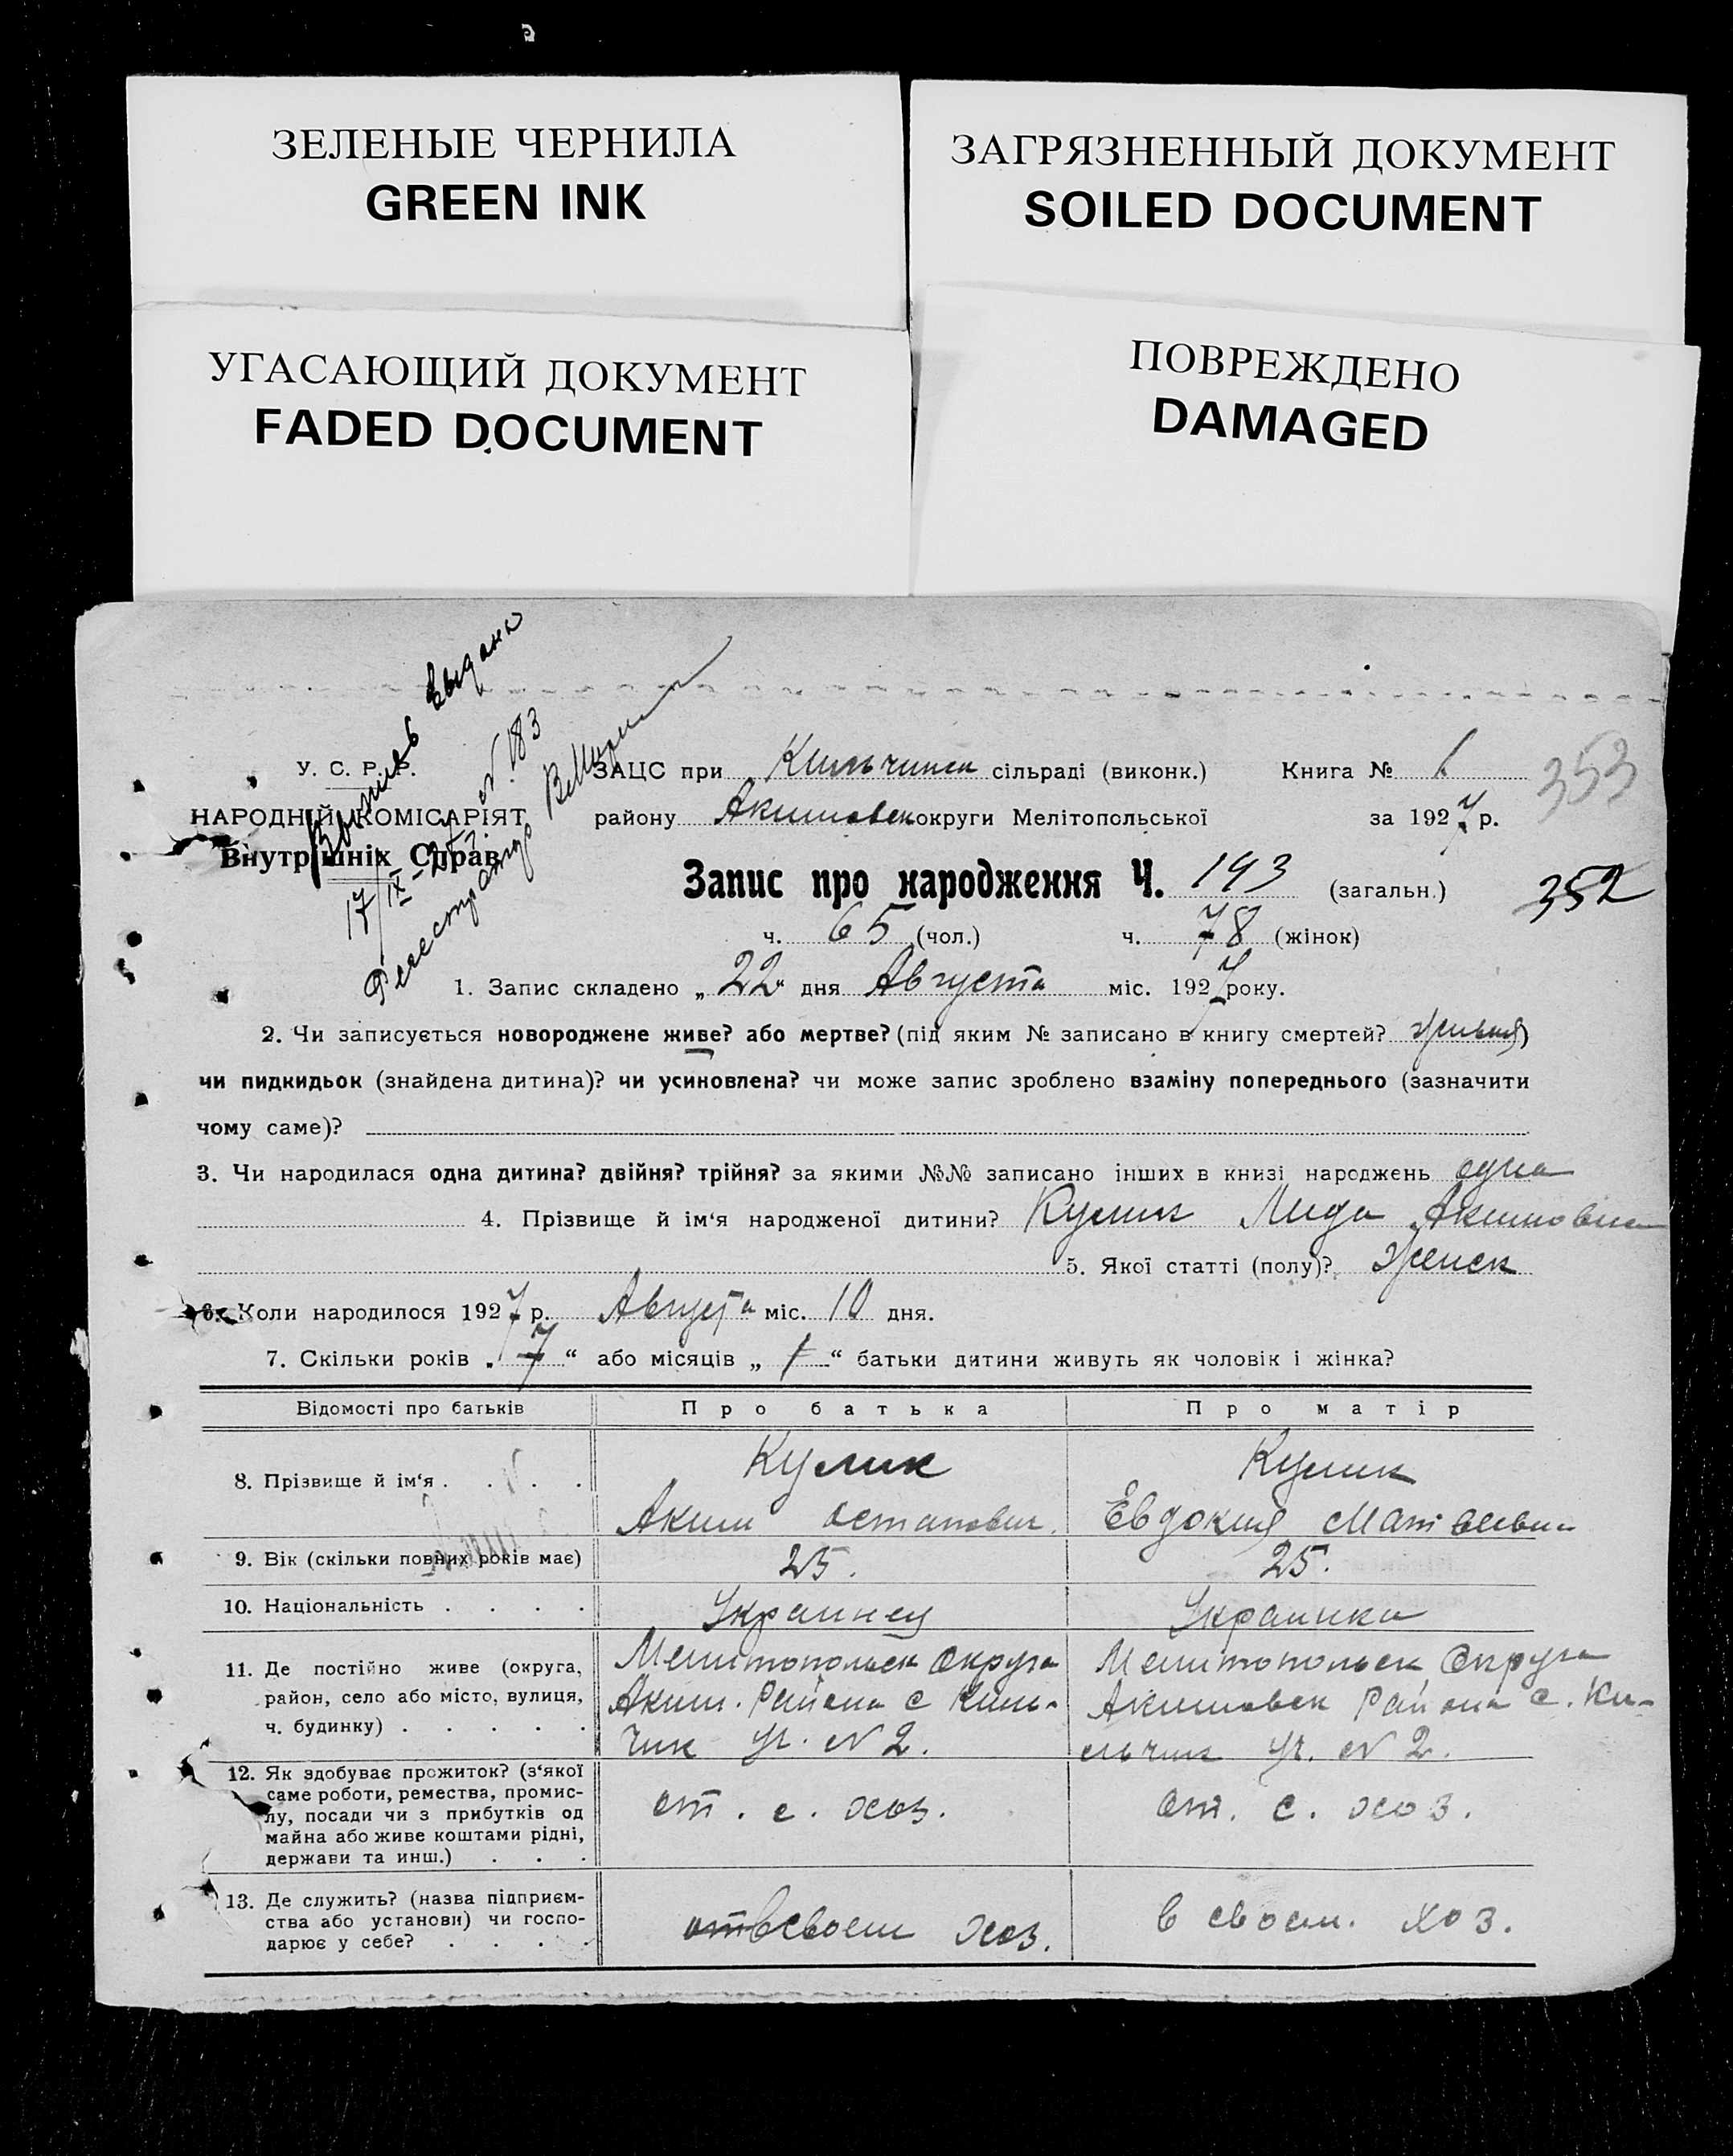 ЗЕЛЕНЫЕ ЧЕРНИЛА
GREEN INK
ЗАГРЯЗНЕННЫЙ ДОКУМЕНТ
SOILED DOCUMENT
УГАСАЮЩИЙ ДОКУМЕНТ
FADED DOCUMENT
ПОВРЕЖДЕНО
DAMAGED
Выпись Выдана
17/IX-27 N.183
У. С. Р. Р.
НАРОДНІЙ КОМІСАРІЯТ
Внутрішніх Справ
ЗАЦС при Кильчинск сільраді (виконк.) Книга № 1
353
району Акимовск округи Мелітопольської за 1927 р.
Запис про народження Ч. 143 (загальн.)
352
ч. 65 (чол.) ч. 78 (жінок)
1. Запис складено „22“ дня Августа міс. 1927 року.
2. Чи записується новороджене живе? або мертве? (під яким № записано в книгу смертей?)
чи пидкидьок (знайдена дитина)? чи усиновлена? чи може запис зроблено взаміну попереднього (зазначити
чому саме)?
3. Чи народилася одна дитина? двійня? трійня? за якими №№ записано інших в книзі народжень одна
4. Прізвище й ім‘я народженої дитини? Кулик Лида Акимовна
5. Якої статті (полу)? Женск
6. Коли народилося 1927 р. Августа міс. 10 дня.
7. Скільки років „7“ або місяців „ “ батьки дитини живуть як чоловік і жінка?
Відомості про батьків Про батька Про матір
8. Прізвище й ім‘я . . . . Кулик Кулик
Аким Остапович Евдокия Матвеевн
9. Вік (скільки повних років має) 25. 25.
10. Національність . . . . Украинец Украинка
11. Де постійно живе (округа, Мелитопольск Округа Мелитопольск Округа
район, село або місто, вулиця, Аким. Района с Киль- Акимовск Района с. Ки-
ч. будинку) . . . . . чик ул. N 2. ельчик ул. N 2.
12. Як здобуває прожиток? (з‘якої
саме роботи, ремества, промис-
лу, посади чи з прибутків од от. с. хоз. от. с. хоз.
майна або живе коштами рідні,
держави та инш.) . . .
13. Де служить? (назва підприєм-
ства або установи) чи госпо- в своем хоз. в своем. хоз.
дарює у себе? . . . .